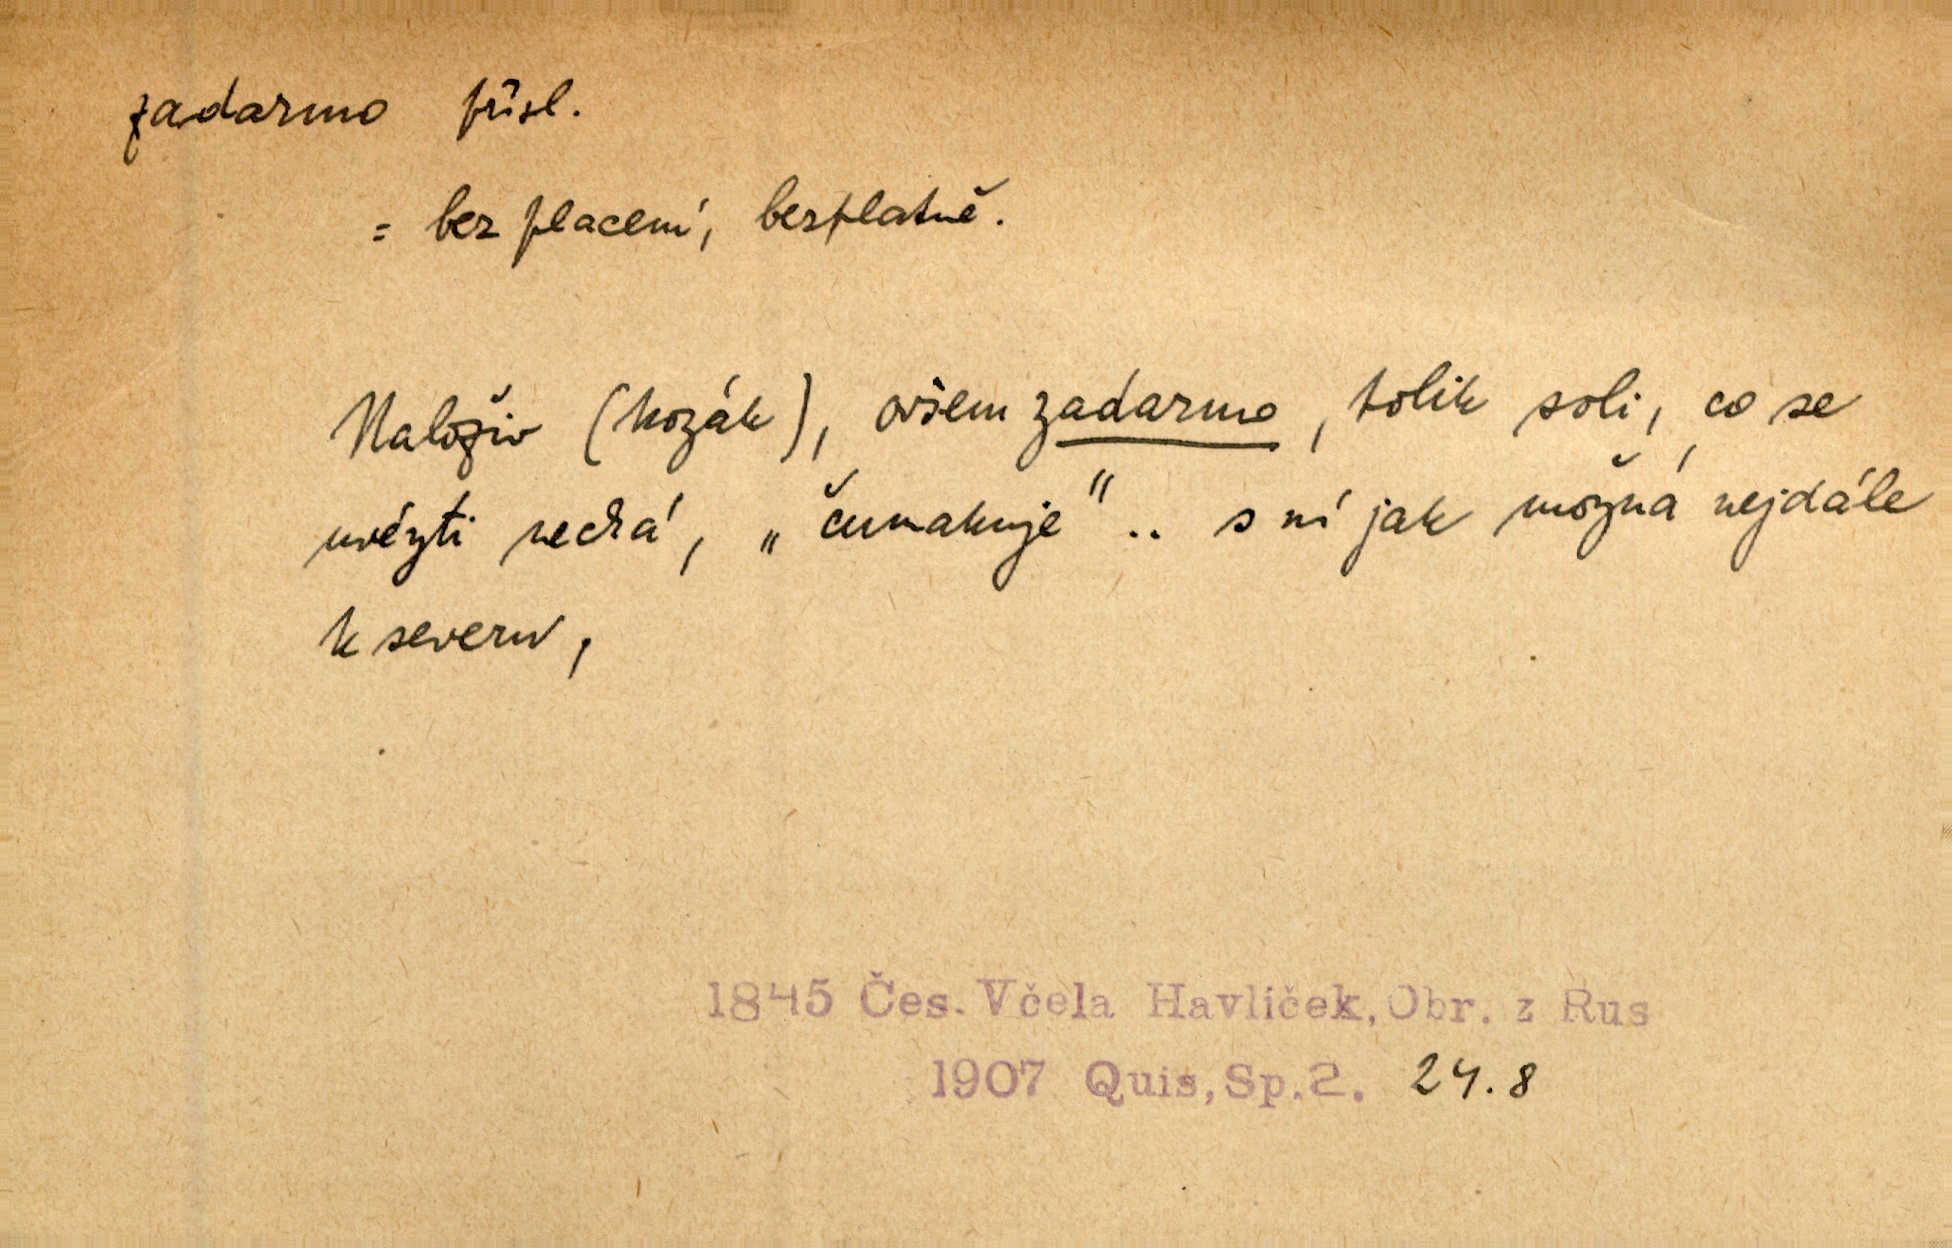 zadarmo přísl.
= bez placení, bezplatně.
Naloživ (kozák), ovšem zadarmo, tolik soli, co se
uvézti nechá, „čumakuje“.. s ní jak možná nejdále
k severu,
1845 Čes. Včela Havlíček, Obr. z Rus
1907 Quis, Sp. 2. 24.8